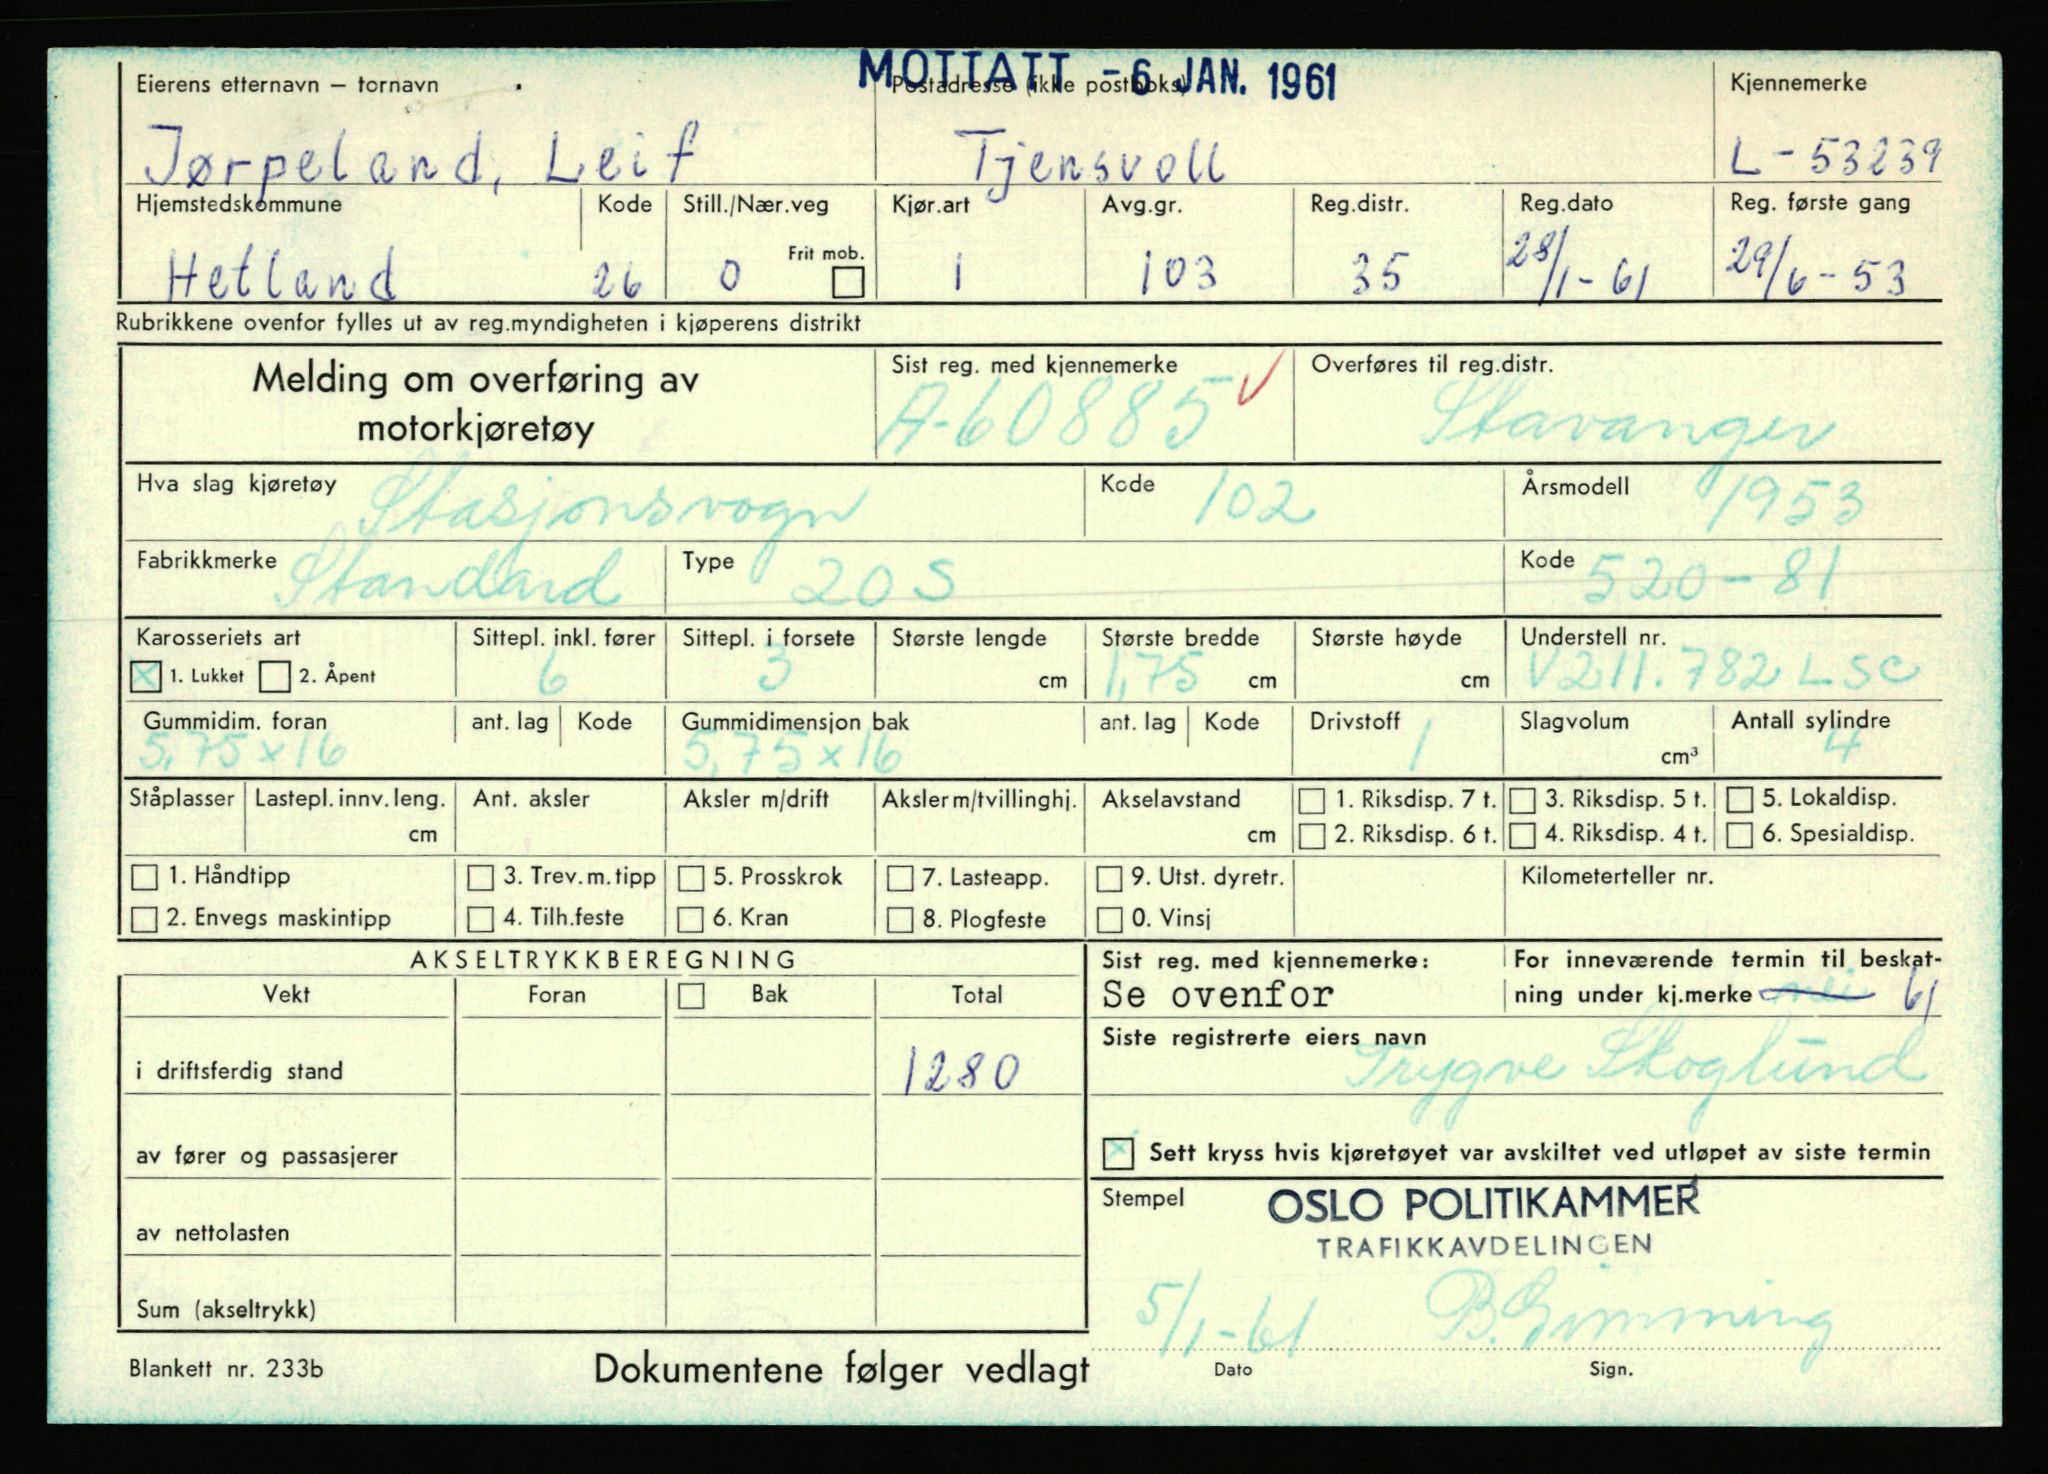 MOTTATT - 6 JAN. 1961
Eierens etternavn – fornavn Postadresse (ikke postboks) Kjennemerke
Jørpeland, Leif Tjensvoll L-53239
Hjemstedskommune Kode Still./Nær.veg Kjør.art Avg.gr. Reg.distr. Reg.dato Reg. første gang
Frit mob.
Hetland 26 0 1 103 35 28/1-61 29/6-53
Rubrikkene ovenfor fylles ut av reg.myndigheten i kjøperens distrikt
Melding om overføring av Sist reg. med kjennemerke Overføres til reg.distr.
motorkjøretøy A-60885 Stavanger
Hva slag kjøretøy Stasjonsvogn Kode 102 Årsmodell 1953
Fabrikkmerke Standard Type 20 S Kode 520-81
Karosseriets art Sittepl. inkl. fører Sittepl. i forsete Største lengde Største bredde Største høyde Understell nr.
1. Lukket 2. Åpent 6 3 cm 1,75 cm cm V211.782 LSC
Gummidim. foran ant. lag Kode Gummidimensjon bak ant. lag Kode Drivstoff Slagvolum Antall sylindre
5,75x16 5,75x16 1 cm³ 4
Ståplasser Lastepl. innv. leng. Ant. aksler Aksler m/drift Aksler m/tvillinghj. Akselavstand 1. Riksdisp. 7 t. 3. Riksdisp. 5 t. 5. Lokaldisp.
cm cm 2. Riksdisp. 6 t. 4. Riksdisp. 4 t. 6. Spesialdisp.
1. Håndtipp 3. Trev. m. tipp 5. Prosskrok 7. Lasteapp. 9. Utst. dyretr. Kilometerteller nr.
2. Envegs maskintipp 4. Tilh.feste 6. Kran 8. Plogfeste 0. Vinsj
AKSELTRYKKBEREGNING Sist reg. med kjennemerke: For inneværende termin til beskat-
Vekt Foran Bak Total Se ovenfor ning under kj.merke nei 61
Siste registrerte eiers navn
i driftsferdig stand 1280 Trygve Skoglund
av fører og passasjerer Sett kryss hvis kjøretøyet var avskiltet ved utløpet av siste termin
Stempel OSLO POLITIKAMMER
av nettolasten TRAFIKKAVDELINGEN
Sum (akseltrykk) 5/1-61 B. Gimming
Blankett nr. 233b Dokumentene følger vedlagt Dato Sign.